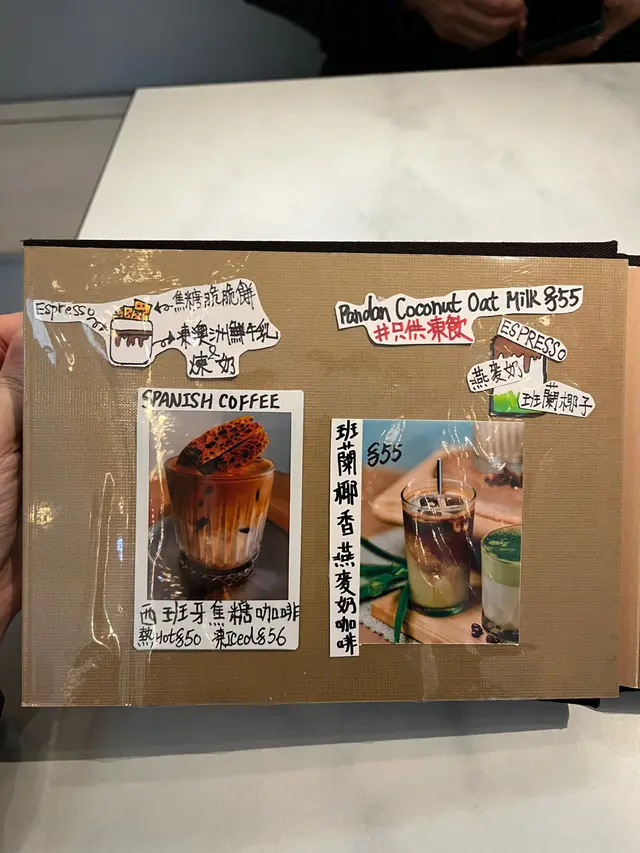 Espresso
焦糖脆脆餅
東澳洲鮮牛乳
&
煉奶
SPANISH COFFEE
西班牙焦糖咖啡
熱Hot$50 凍Iced$56
Pandan Coconut Oat Milk $55
#只供凍飲
ESPRESSO
燕麥奶
班蘭椰子
班蘭椰香燕麥奶咖啡
$55